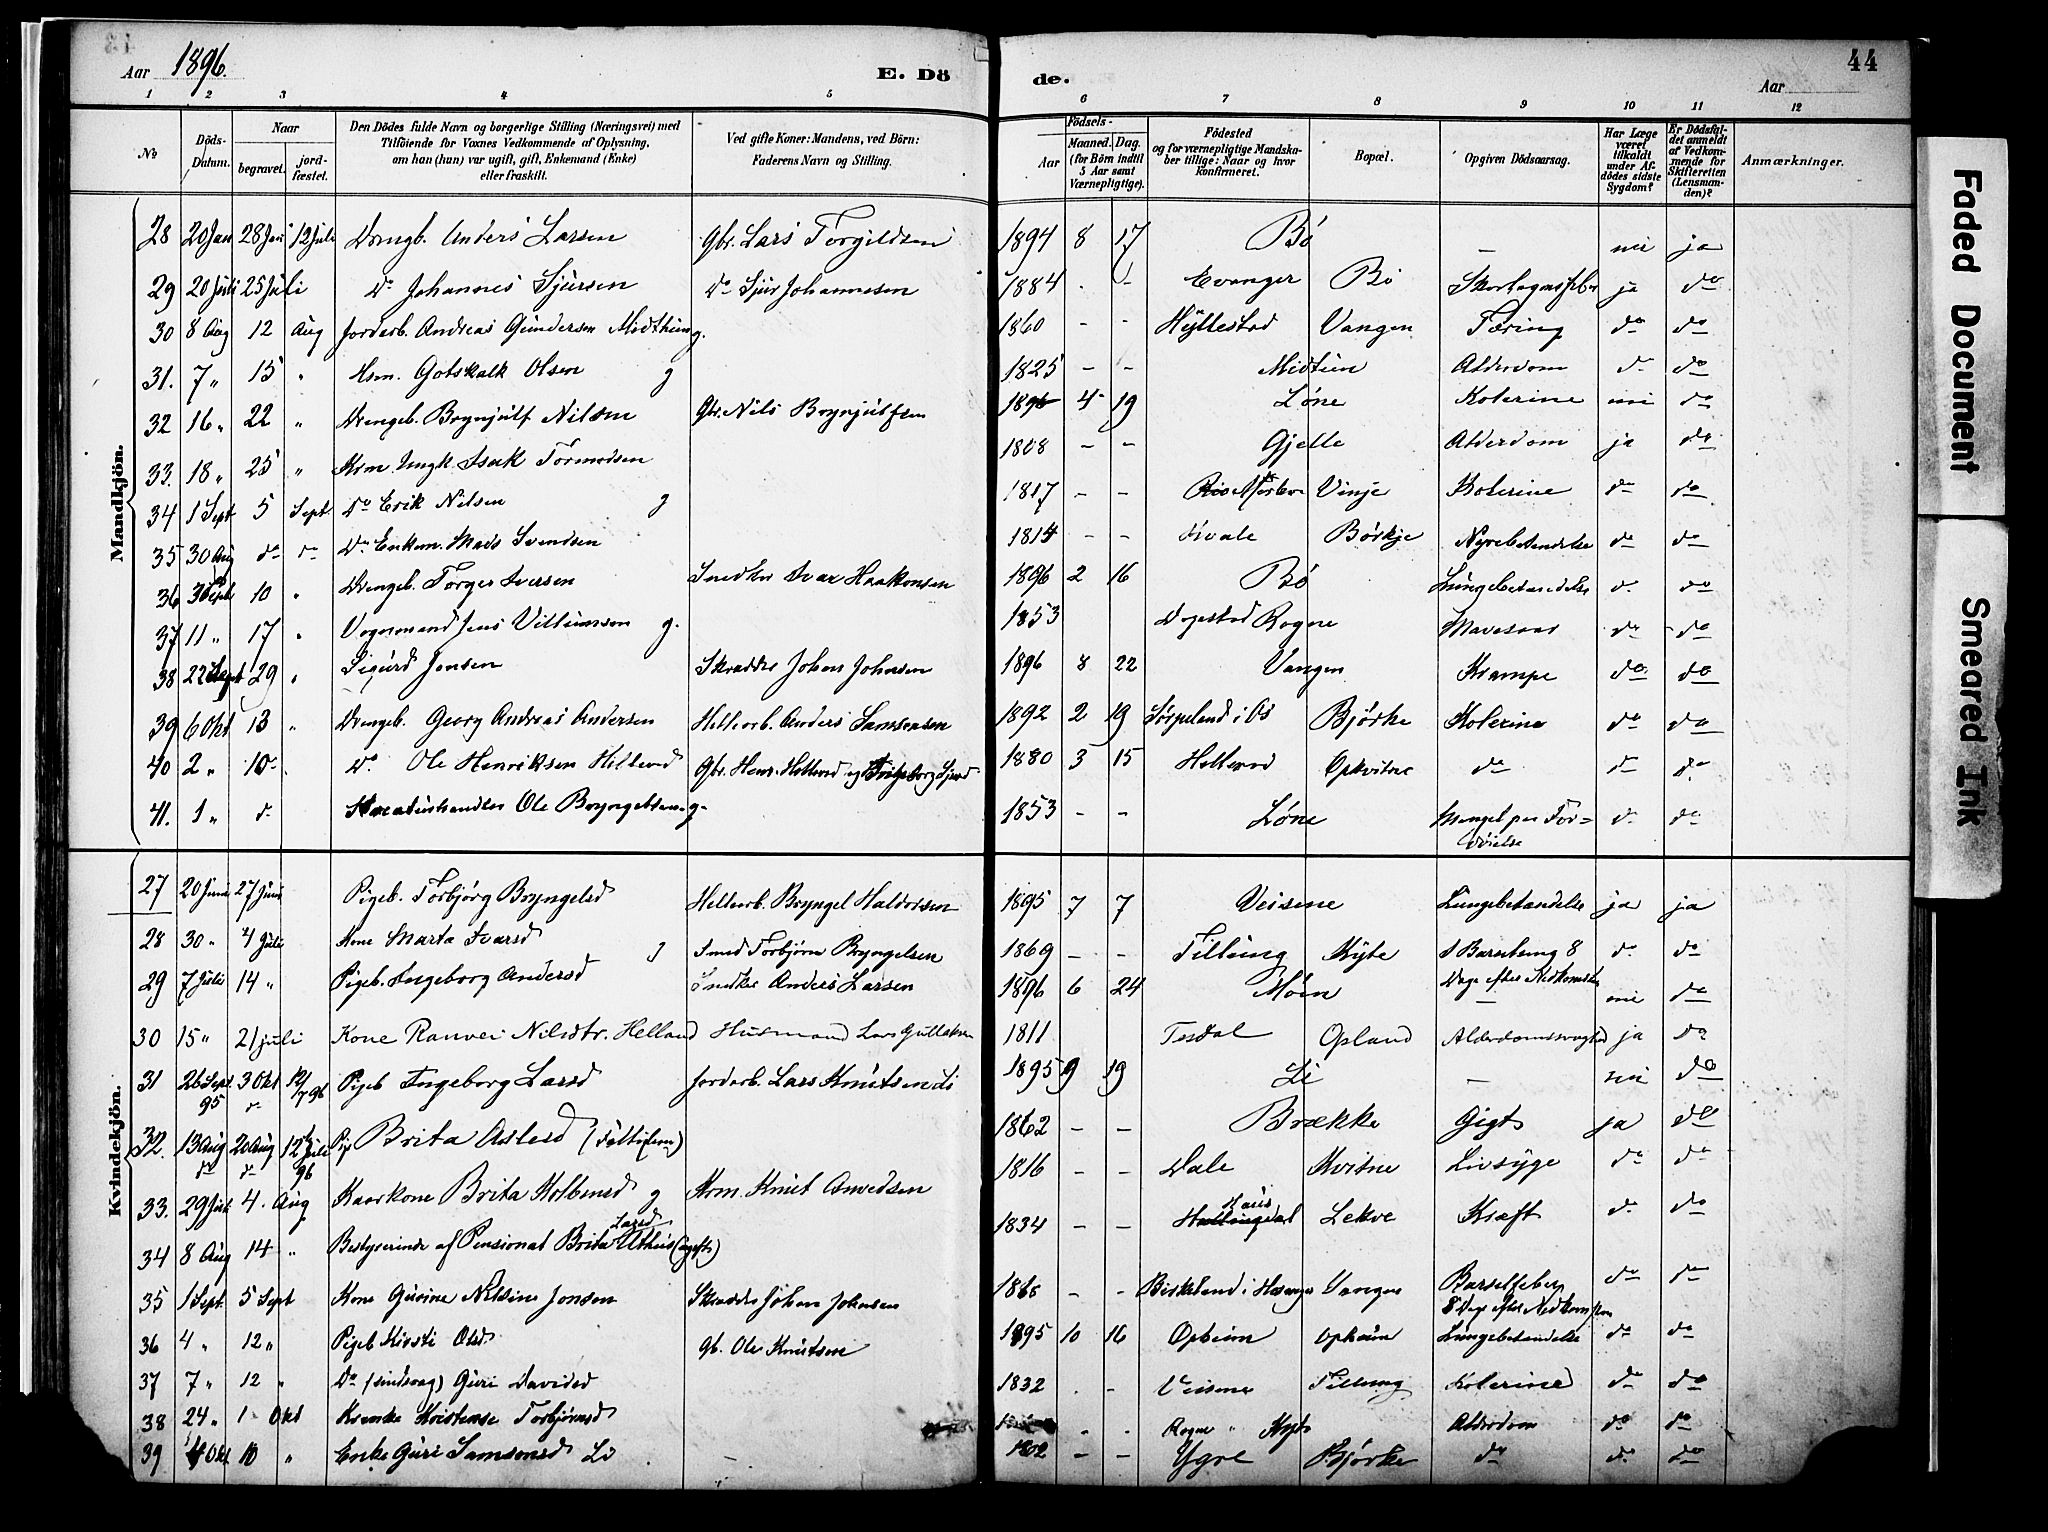 Aar 1896.
E. Dö
de.
Aar
44
1 2 3 4 5 6 7 8 9 10 11 12
No
Döds-Datum.
Naar
begravet.
jord-fæstet.
Den Dödes fulde Navn og borgerlige Stilling (Næringsvei) med
Tilföiende for Voxnes Vedkommende af Oplysning,
om han (hun) var ugift, gift, Enkemand (Enke)
eller fraskilt.
Ved gifte Koner: Mandens, ved Börn:
Faderens Navn og Stilling.
Födsels-
Aar
Maaned. Dag.
(for Börn indtil
5 Aar samt
Værnepligtige).
Födested
og for værnepligtige Mandska-
ber tillige: Naar og hvor
konfirmeret.
Bopæl.
Opgiven Dödsaarsag.
Har Læge
været
tilkaldt
under Af-
dödes sidste
Sygdom?
Er Dödsfal-
det anmeldt
af Vedkom-
mende for
Skifteretten
(Lensman-
den)?
Anmærkninger.
Mandkjön.
28 20 Jan 28 Jan 12 Juli Drengb. Anders Larsen Gbr. Lars Torgildsen 1894 8 17 Bö — nei ja
29 20 Juli 25 Juli Do Johannes Sjursen Do Sjur Johannesen 1884 - - Evanger Bö Skarlagensfeber ja do
30 8 Aug 12 Aug Jordarb. Andreas Gundersen Midthun g. 1860 - - Hyllestad Vangen Tæring do do
31. 7 " 15 " Hsm. Gotskalk Olsen g 1825 - - Midtun Alderdom do do
32 16 " 22 " Drengeb. Brynjulf Nilsen Gbr. Nils Brynjulfsen 1896 4 19 Löne Kolerine nei do
33. 18 " 25 " Krm. Ungk. Isak Tormodsen 1808 - - Gjelle Alderdom ja do
34 1 Sept 5 Sept. Do Erik Nilsen g 1817 - - Vinje Kolerine do do
35 30 Aug do do Do Enkem. Mads Svendsen 1814 - - Kvale Börkje Nyrebetændelse do do
36 3 Sept 10 " Drengeb. Torger Iversen Snedker Ivar Haakonsen 1896 2 16 Bö Lungebetændelse do do
37 11 " 17 " Vognmand Jens Villumsen g. 1853 Dagestad Rogne Mavesaar do do
38 22 Sept 29 " Sigurd Jensen Skrædder Johan Johnsen 1896 8 22 Vangen Krampe do do
39 6 Okt 13 " Drengeb. Georg Andreas Andersen Hellearb. Anders Samsonsen 1892 2 19 i Os Björke Kolerine do do
40 2 " 10 " Do Ole Henriksen Helleud 1880 3 15 Opkvitne do do do
41. 1 " do Ole Bryngelsen g. 1853 - - Löne Mangel paa For=
döielse do do
Kvindekjön.
27 20 Juni 27 Juni Pigeb. Torbjörg Bryngelsd Hellearb. Bryngel Haldorsen 1895 7 7 Veisene Lungebetændelse ja ja
28 30 " 4 Juli Kone Marta Ivarsd g Smed Torbjörn Bryngelsen 1869 - - Tillung Kyte I Barselseng 8
Dage efter Nedkomsten do do
29 7 Juli 14 " Pigeb. Ingeborg Andersd Snedker Anders Larsen 1896 6 24 Möen — nei do
30 15 " 21 juli Kone Ranvei Nilsdtr. Helland Husmand Lars Gullaksen 1811 Tesdal Opland Alderdomssvaghed ja do
31 26 Sept. 95 3 Okt do 12/7 96 Pigeb Ingeborg Larsd Jordarb. Lars Knutsen Li 1895 9 19 Li — nei do
32. 13 Aug do 20 Aug do 12 Juli 96 Pig Brita Aslesd (Fattiglem) 1862 - - Brække Gigt ja do
33. 29 Juli 4. Aug Kaarkone Brita Kolbensd g Krm. Knut Anvedsen 1816 - - Dale Kvitne Livsyge do do
34 8 Aug 14 " Bestyrerinde af Pensionat Brita Larsd Uthus (ugift) 1834 - - Hallingdal Lekve Kræft do do
35 1 Sept. 5 Sept Kone Gurine Nilsine Jonsen Skrædder Johan Johnsen - - Birkeland i Vangen Barselfeber
8 Dage efter Nedkomsten do do
36 4 " 12 " Pigeb Kirsti Olsd gb. Ole Knutsen 1895 10 16 Opheim opheim Lungebetændelse do do
37 7 " 12 " Do (sindsvag) Guri Davidsd 1832 - - Veisene Tillung Kolerine do do
38 24 " 1 Okt Kristense Torbjörnsd Rogne Kyte Alderdom do do
39 4 Okt 10 " Enke Guri Samsonsd Li 1802 - - Ygre Björke do do do
Faded Document
Smeared Ink